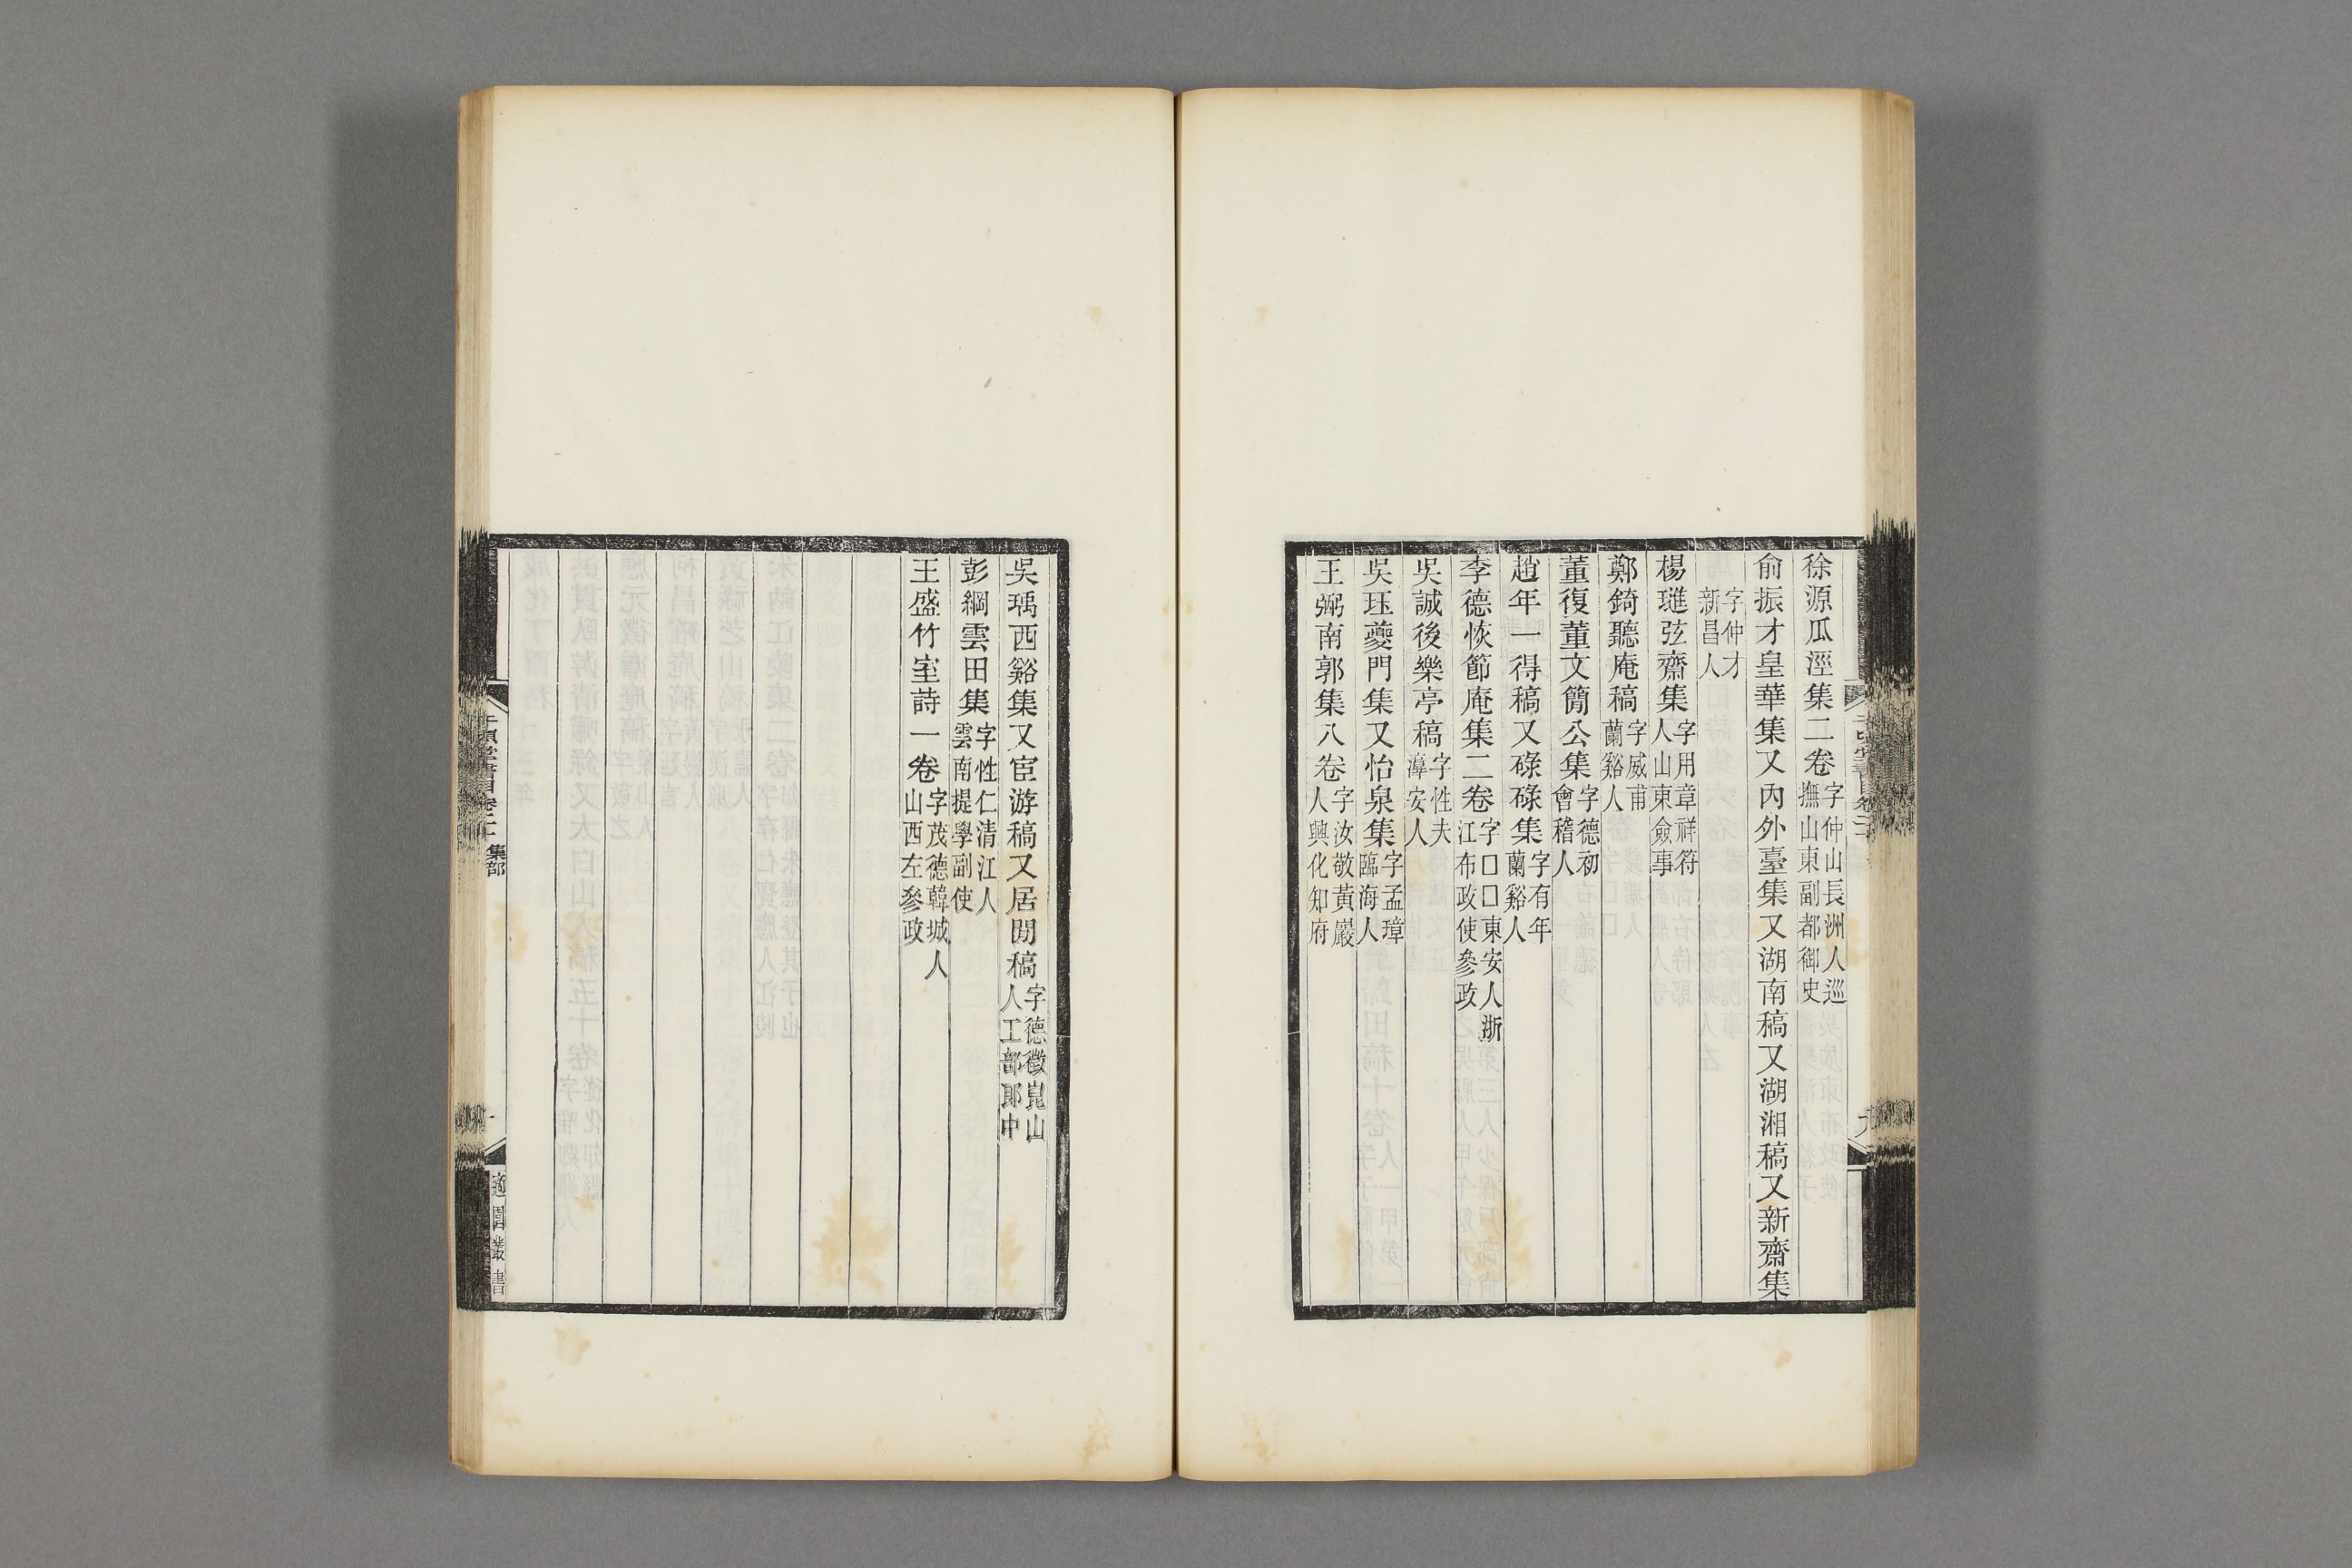 徐源瓜涇集二卷字仲山長洲人巡撫山東副都御史
俞振才皇華集又內外臺集又湖南稿又湖湘稿又新齋集
字仲才新昌人
楊璡弦齋集字用章祥符人山東僉事
鄭錡聽庵稿字威甫蘭谿人
董復董文簡公集字德初會稽人
趙年一得稿又碌碌集字有年蘭谿人
李德恢節庵集二卷字□□東安人浙江布政使參政
吳誠後樂亭稿字性夫漳安人
吳珏夔門集又怡泉集字孟璋臨海人
王弼南郭集八卷字汝敬黃巖人興化知府
吳瑀西谿集又宦游稿又居閒稿字德徵崑山人工部郎中
彭綱雲田集字性仁清江人雲南提學副使
王盛竹室詩一卷字茂德韓城人山西左參政
千頃堂書目卷二十 集部
適園叢書